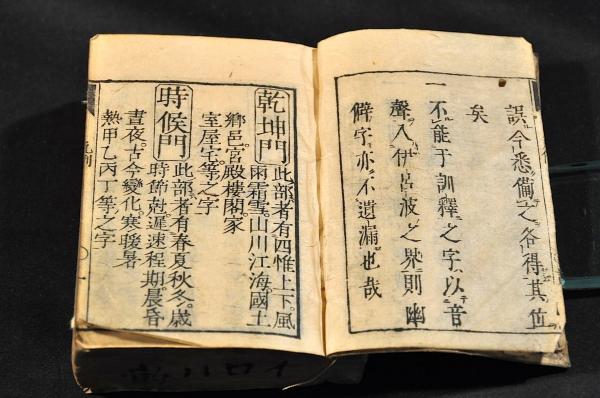 誤今悉備之各得其位
矣
一不能于訓釋之字以音
聲入伊呂波之界則幽
僻字亦不遺漏也哉
乾坤門 此部者有四惟上下。風
雨霜雪。山川江海。國土
鄉邑。宮殿樓閣。家
室屋宅等之字
時候門 此部者有春夏秋冬。歲
時節尅遲速程期。晨昏
晝夜。古今變化。寒暖暑
熱甲乙丙丁等之字
イロハ